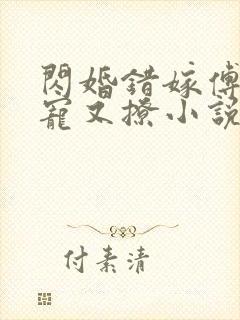 閃婚錯嫁傅
寵又撩小說
付素清